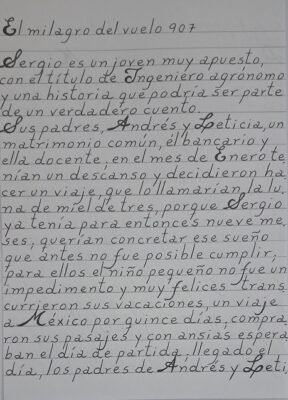 El milagro del vuelo 907
Sergio es un joven muy apuesto,
con el título de Ingeniero agrónomo
y una historia que podría ser parte
de un verdadero cuento.
Sus padres, Andrés y Leticia, un
matrimonio común, él bancario y
ella docente, en el mes de Enero te
nían un descanso y decidieron ha
cer un viaje, que lo llamarían, la lu.
na de miel de tres, porque Sergio
ya tenía para entonces nueve me.
ses, querían concretar ese sueño
que antes no fue posible cumplir,
para ellos el niño pequeño no fue un
impedimento y muy felices trans
currieron sus vacaciones, un viaje
a México por quince días, compra
ron sus pasajes y con ansias espera
ban el día de partida, llegado el
día, los padres de Andrés y Leti,